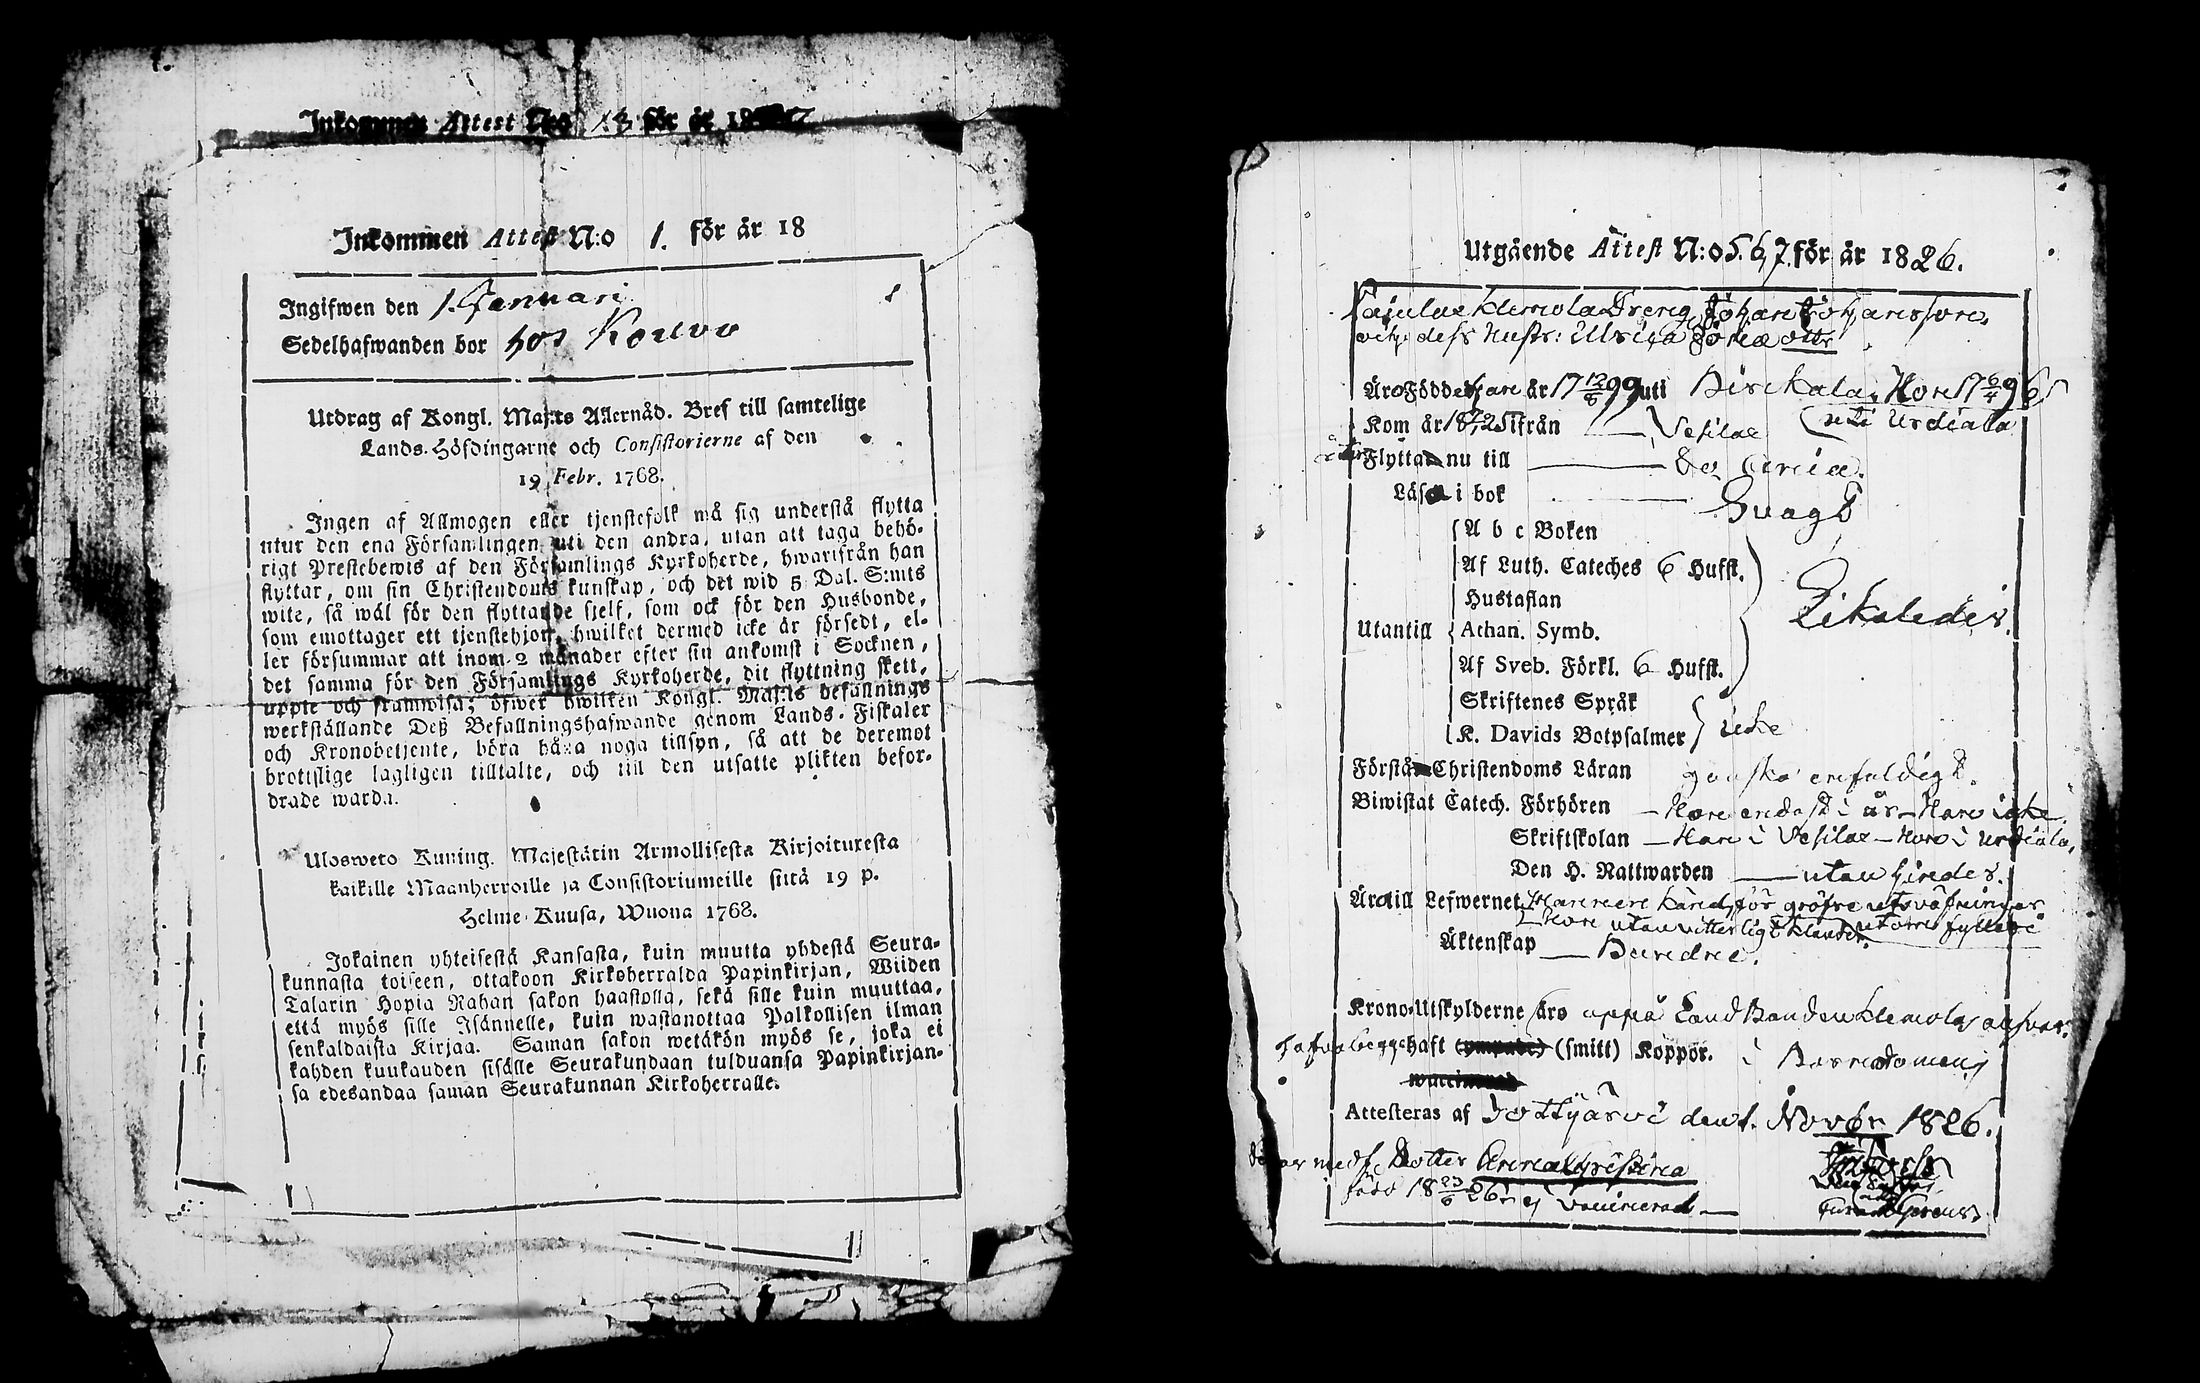 Inkommen Attest N:o 13 för år 18
Inkommen Attest N:o 1. för år 18
Ingifwen den 1. Januari
Sedelhafwanden bor hos
Utdrag af Kongl. Maj:ts Allernåd. Bref till samtelige
Lands-Höfdingarne och Consistorierne af den
19 Febr. 1768.
Ingen af Allmogen eller tjenstefolk må sig understå flytta
utur den ena Församlingen uti den andra, utan att taga behö-
rigt Prestebewis af den Församlings Kyrkoherde, hwarifrån han
flyttar, om sin Christendoms kunskap, och det wid 5 Dal. S:mts
wite, så wäl för den flyttande sjelf, som ock för den Husbonde,
som emottager ett tjenstehjon, hwilket dermed icke är försedt, el-
ler försummar att inom 2 månader efter sin ankomst i Socknen,
det samma för den Församlings Kyrkoherde, dit flyttning skett,
uppte och framwisa; öfwer hwilken Kongl. Maj:ts befallnings
werkställande Deß Befallningshafwande genom Lands-Fiskaler
och Kronobetjente, böra hafwa noga tillsyn, så att de deremot
brottslige lagligen tilltalte, och till den utsatte plikten befor-
drade warda.
Ulosweto Kuning. Majestätin Armollisesta Kirjoituxesta
kaikille Maanherroille ja Consistoriumeille siitä 19 p.
Helme-Kuusa, Wuona 1768.
Jokainen yhteisestä Kansasta, kuin muutta yhdestä Seura-
kunnasta toiseen, ottakoon Kirkoherralda Papinkirjan, Wiiden
Talarin Hopia Rahan sakon haastolla, sekä sille kuin muuttaa,
että myös sille Isännelle, kuin wastanottaa Palkollisen ilman
senkaldaista Kirjaa. Saman sakon wetäkön myös se, joka ei
kahden kuukauden sisälle Seurakundaan tulduansa Papinkirjan-
sa edesandaa saman Seurakunnan Kirkoherralle.
Utgående Attest N:o 5. 6, 7. för år 1826.
Klemola Dreng Johan Johansson,
och deſs Hustr: Ulrica
Äro Födde Han år 17 12/6 99 uti Birckala, Hon 17 6/4 96
Kom år 1825 ifrån Vesilax uti Urdiala
Flytta nu till
Läsa i bok Svagt
A b c Boken
Af Luth. Cateches 6 Hufst.
Hustaflan
Utantill Athan. Symb. Likaledes.
Af Sveb. Förkl. 6 Hufst.
Skriftenes Språk
K. Davids Botpsalmer icke
Förstå Christendoms Läran ganska enfaldigt.
Biwistat Catech. Förhören – Hon endast i år – Han icke.
Skriftskolan – Han i Vesilax – Hon i Urdiala,
Den H. Nattwarden utan hinder.
Äro till Lefwernet Han känd för gröfre utsväfningar
Hon utan vitterligt klander.
Äktenskap Bundne.
Krono-Utskylderne äro uppå Landbonden Klemolas answar
haft (smitt) Koppor. i Barndomen
Attesteras af Tottijärvi den 1. Novbr 1826.
Dotter Anna Christina
född 18 23/6 26 ej Vaccinerad